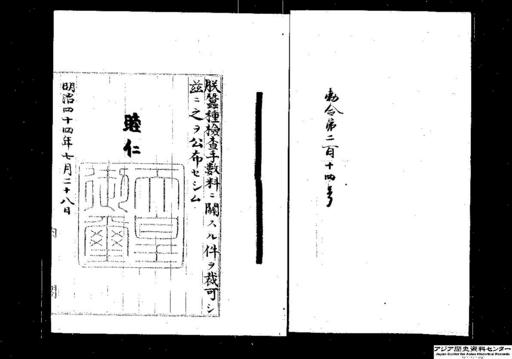 勅令第二百十四号
朕蚕種検査手数料ニ関スル件ヲ裁可シ
茲ニ之ヲ公布セシム
睦仁
天皇御璽
明治四十四年七月二十八日
内閣
アジア歴史資料センター
Japan Center for Asian Historical Records